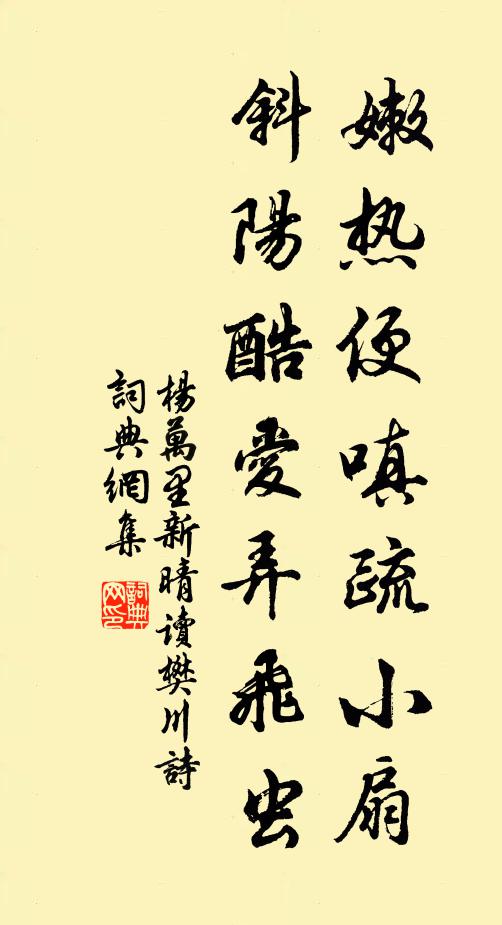 嫩热便嗔疏小扇
斜陽酷愛弄飛虫
楊萬里新晴讀樊川詩
詞典網集
詞典
网印